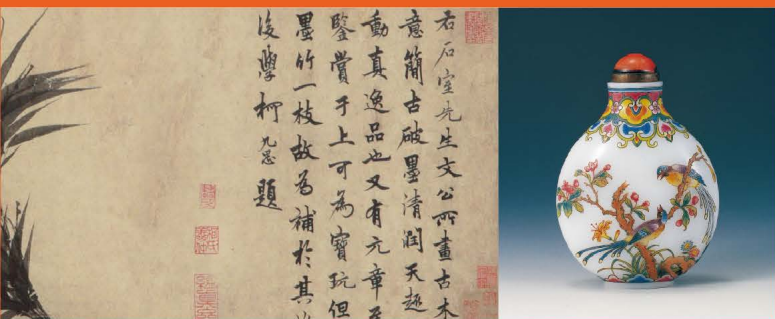 右石室先生文公所畫古木
意簡古破墨清潤天趣
動真逸品也又有元章
鑒賞于上可為寶玩但
墨竹一枝故為補於其
後學柯九思題